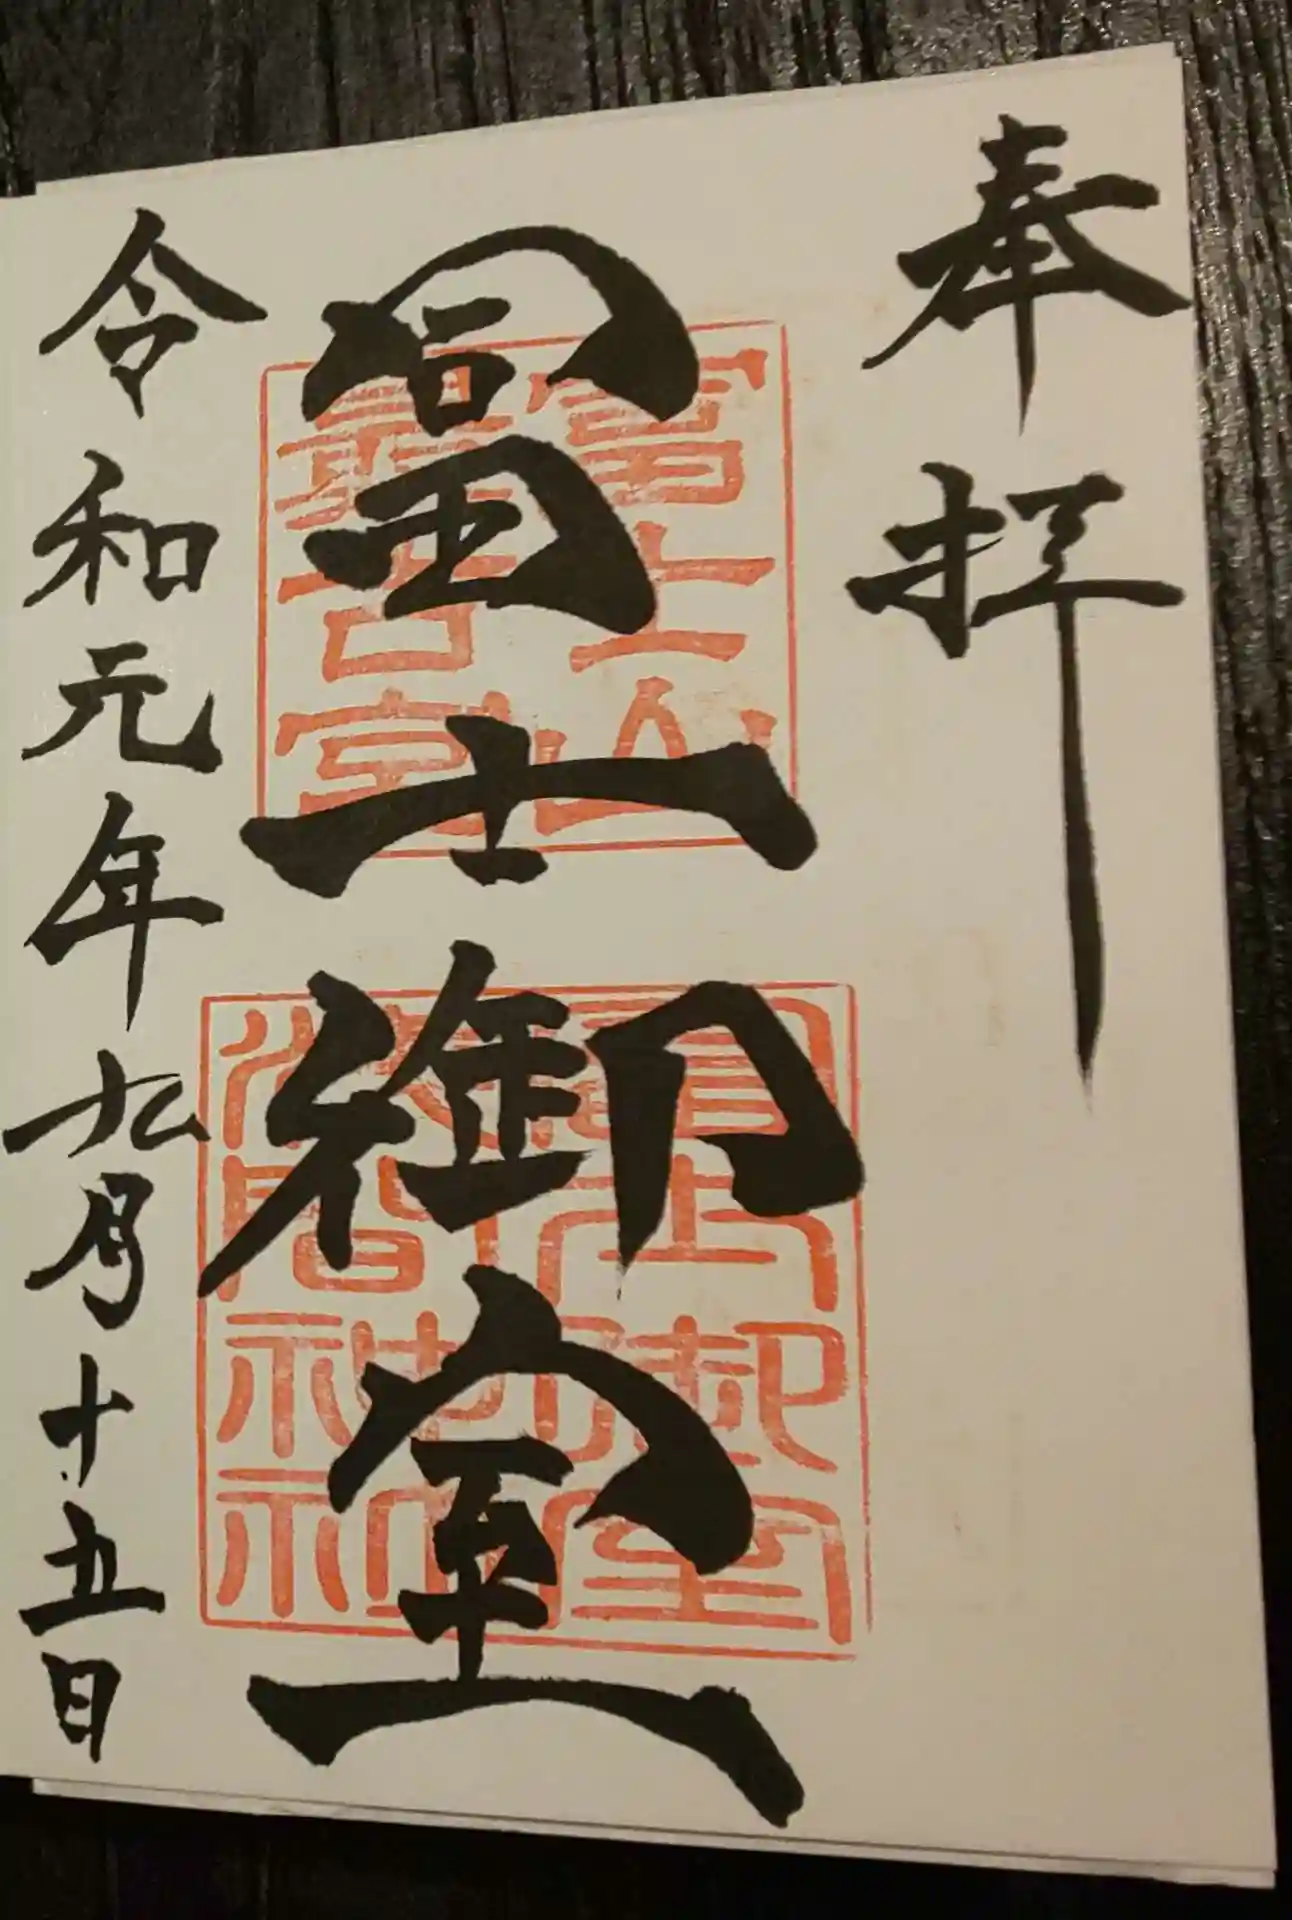 奉拝
冨士御室
令和元年九月十五日
冨士山
古宮
冨士御室
淺間神社